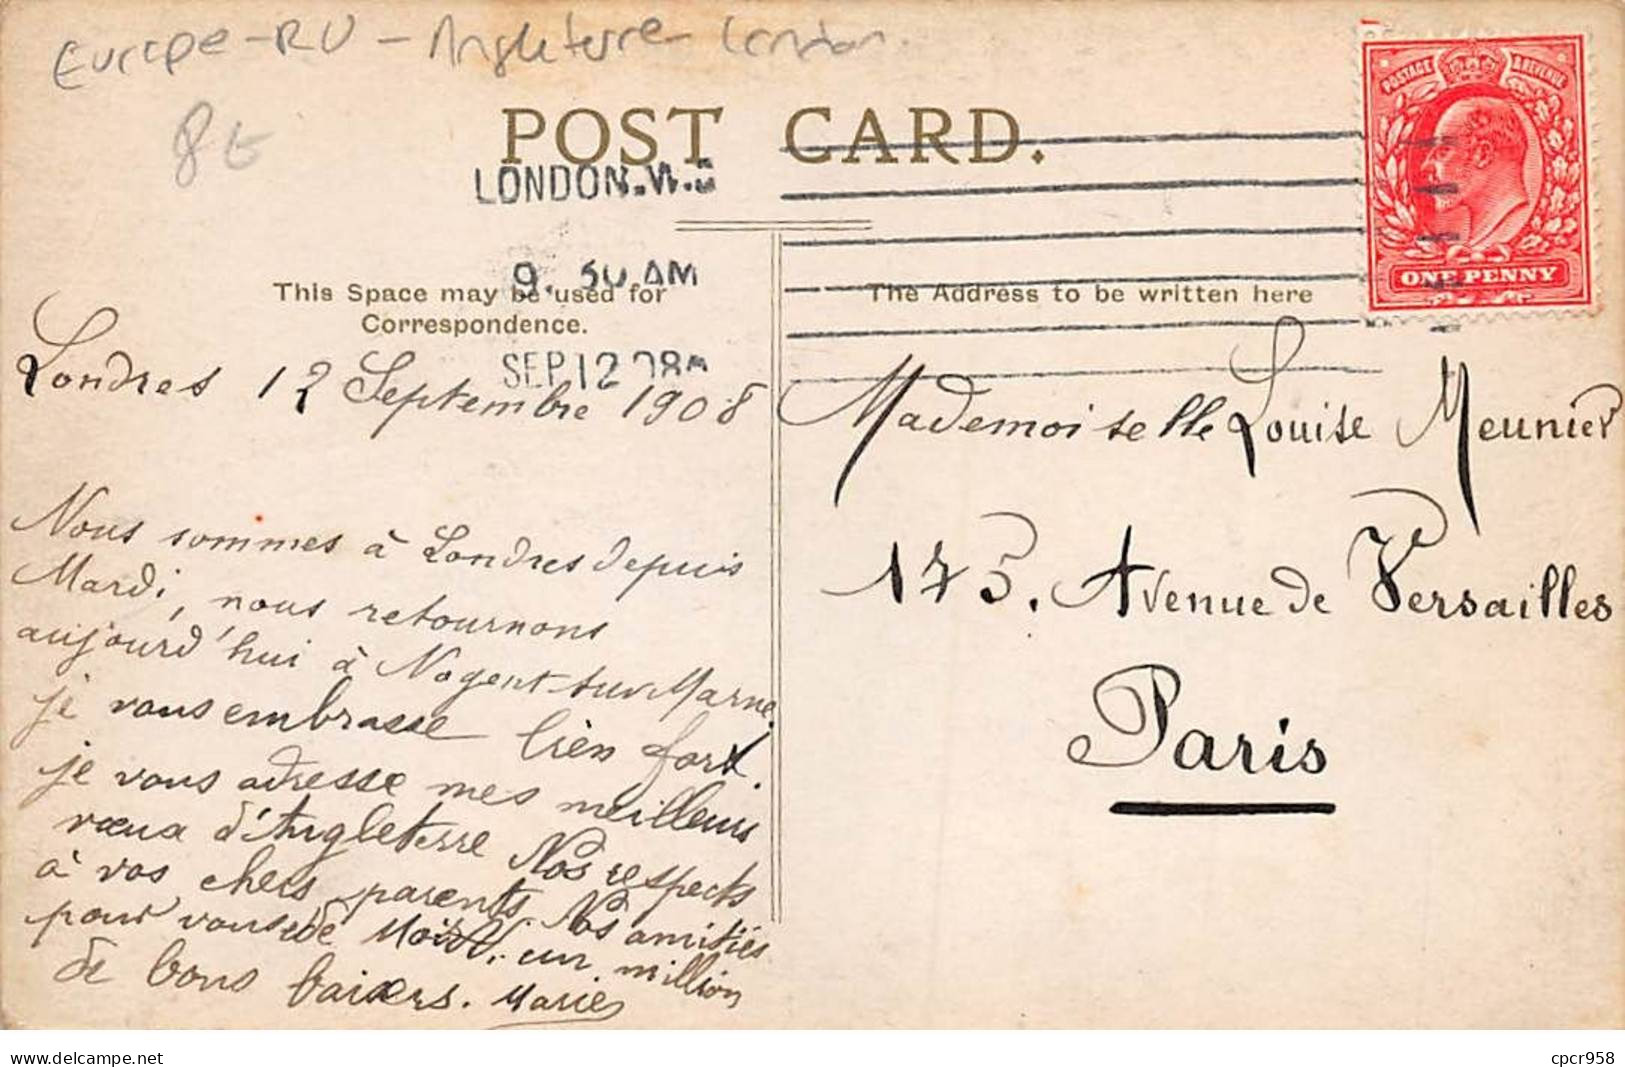 Europe - RU - Angleterre London.
8€
POST CARD.
LONDON.W.C
9. 30 AM
SEP 12 08
POSTAGE & REVENUE
ONE PENNY
This Space may be used for
Correspondence.
The Address to be written here
Londres 12 Septembre 1908
Nous sommes à Londres depuis
Mardi, nous retournons
aujourd'hui à Nogent-sur-Marne.
je vous embrasse bien fort.
je vous adresse mes meilleurs
vœux d'Angleterre Nos respects
à vos chers parents Nos amitiés
pour vous de Moi un million
de bons baisers. Marie
Mademoiselle Louise Meunier
175. Avenue de Versailles
Paris
www.delcampe.net
cpcr958